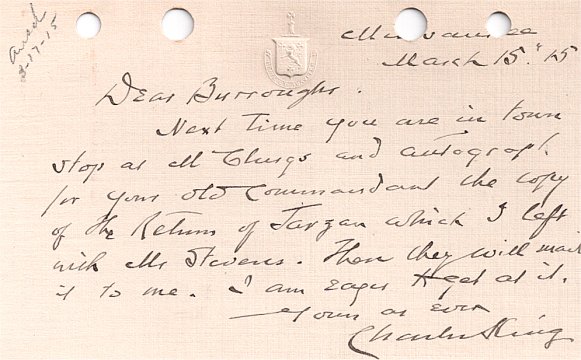 ansd
3-17-15
Milwaukee
March 15" 15
Dear Burroughs.
Next time you are in town
stop at McClurgs and autograph
for your old Commandant the copy
of The Return of Tarzan which I left
with Mr Stevens. Then they will mail
it to me. I am eager to get at it.
Yours as ever
Charles King